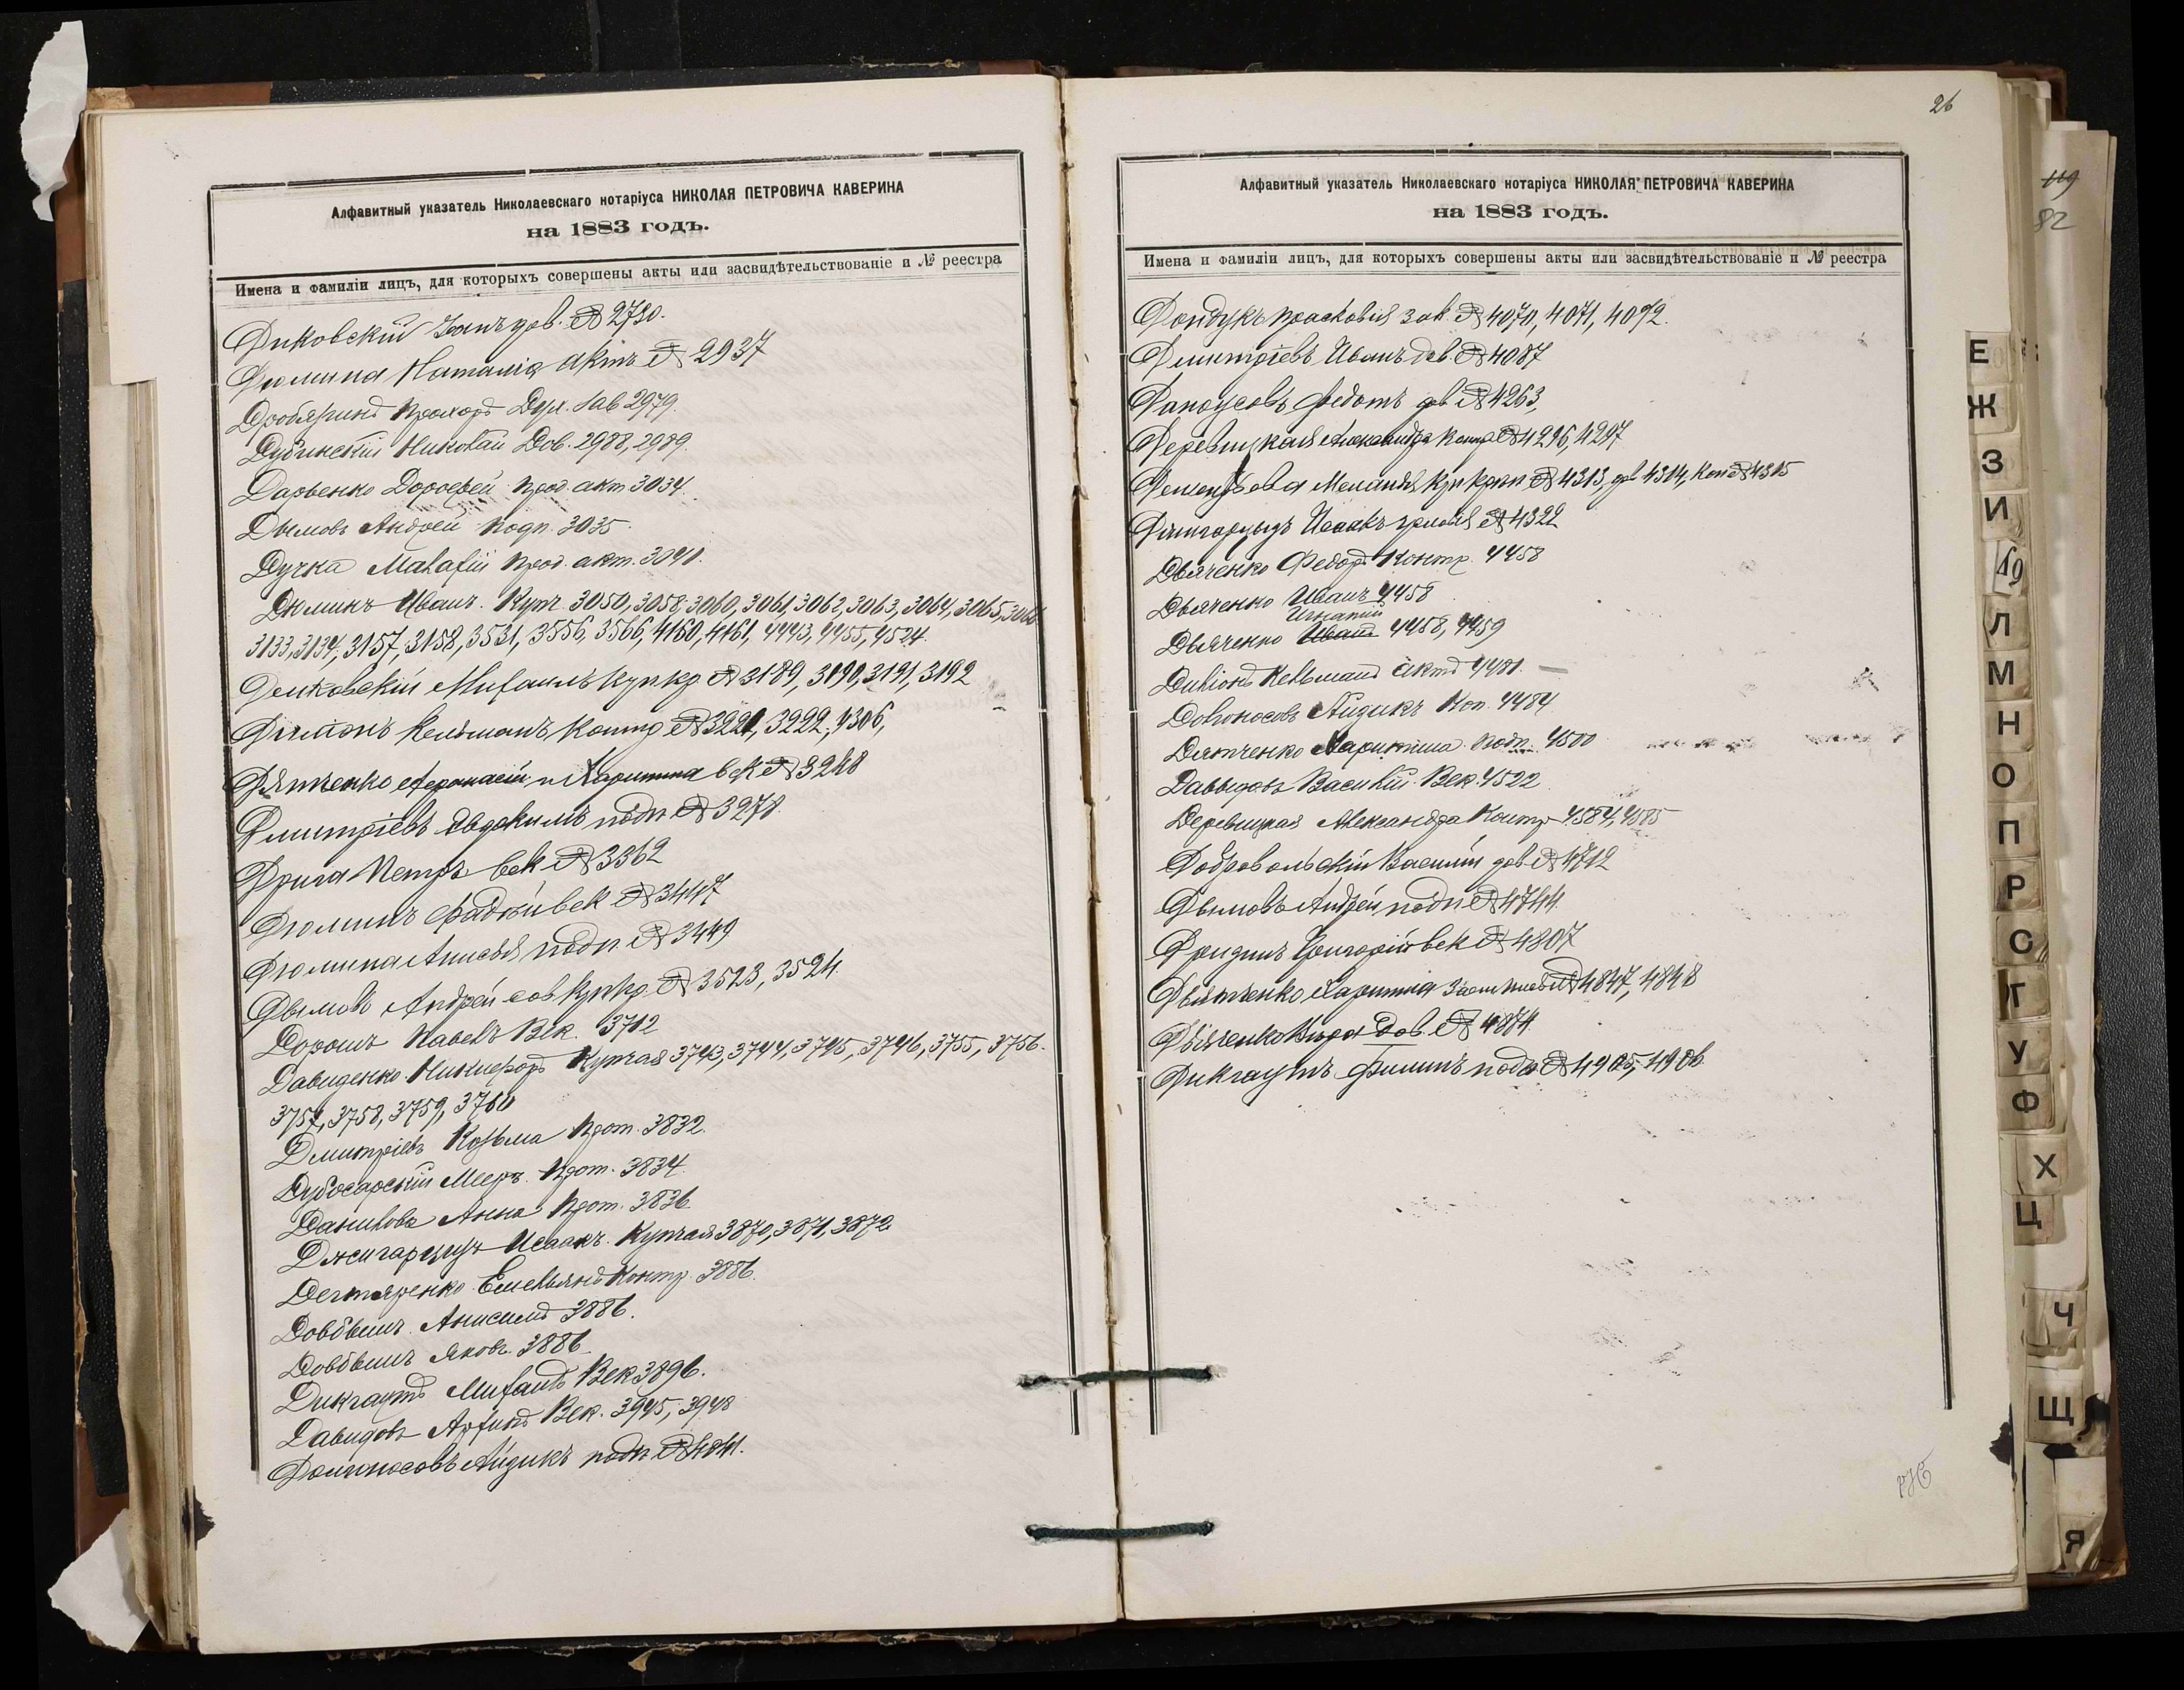 Алфавитный указатель Николаевскаго нотаріуса НИКОЛАЯ ПЕТРОВИЧА КАВЕРИНА
на 1883 годъ.
Имена и фамиліи лицъ, для которыхъ совершены акты или засвидѣтельствованіе и № реестра
Диковскій дов. № 2730.
Дюмина Наталія актъ № 2937
Прохоръ Дух. 2979.
Дубинскій Николай Дов. 2988, 2989.
Дарьенко Дорофей прод. акт. 3034.
Дымовъ Андрей подп. 3035
Дучка Малафій прод. акт.
Дюминъ Иванъ. Купч. 3050, 3058, 3060, 3061, 3062, 3063, 3064, 3065,
3133, 3134, 3157, 3158, 3531, 3556, 3566, 4160, 4161, 4443, 4455, 4524.
Демковскій Михаилъ купкр № 3189, 3190, 3191, 3192
Кельманъ контр № 3221, 3222, 4306,
Дятченко Афанасій и Харитина век № 3248
Дмитріевъ Евдокимъ подп № 3270
Дрига Петръ век № 3362
Дюминъ Фадѣй век № 3447
Дюмина Анисья подп. № 3449
Дымовъ Андрей сов купкр № 3523, 3524.
Дорошъ Павелъ Век. 3712
Давиденко Никифоръ Купчая 3743, 3744, 3745, 3746, 3755, 3756.
3757, 3758, 3759, 3760
Дмитріевъ Козьма Прот. 3832.
Дубосарскій Мееръ. Прот. 3834
Данилова Анна Прот. 3836
Джигарцидъ Исаакъ. Купчая 3870, 3871, 3872
Дегтяренко Емельянъ Контр. 3886.
Довбышъ Анисимъ 3886.
Довбышъ Яковъ. 3886
Дикгаутъ Михаилъ Век 3896.
Давидовъ Век. 3945, 3948
Долгоносовъ Айзикъ подп №
26
Алфавитный указатель Николаевскаго нотаріуса НИКОЛАЯ ПЕТРОВИЧА КАВЕРИНА
на 1883 годъ.
Имена и фамиліи лицъ, для которыхъ совершены акты или засвидѣтельствованіе и № реестра
Дондукъ Прасковія зав. № 4070, 4071, 4072.
Дмитріевъ Иванъ дов № 4087
Федотъ дов № 4263,
Деревицкая Александра контр № 4296, 4297
Дементьева Меланья № 4313, дов 4314, Коп № 4315
Исаакъ № 4322
Дьяченко Федоръ Контр. 4458
Дьяченко Иванъ 4458
Игнатій
Дьяченко Иванъ 4458, 4459
Кельманъ актъ 4481.
Долгоносовъ Айзикъ Коп. 4484
Дятченко Харитина подп. 4500
Давыдовъ Василій. Век. 4522
Деревицкая Александра Контр 4584, 4585
Добровольскій Василій дов № 4712
Дымовъ Андрей подп № 4744.
Григорій век № 4807
Дьятченко Харитина № 4847, 4848
Дьяченко дов. № 4874
Дикгаутъ Филипъ подп № 4905, 4906
119
82
Е
Ж
З
И
Л
М
Н
О
П
Р
С
Т
У
Ф
Х
Ц
Ч
Щ
Я